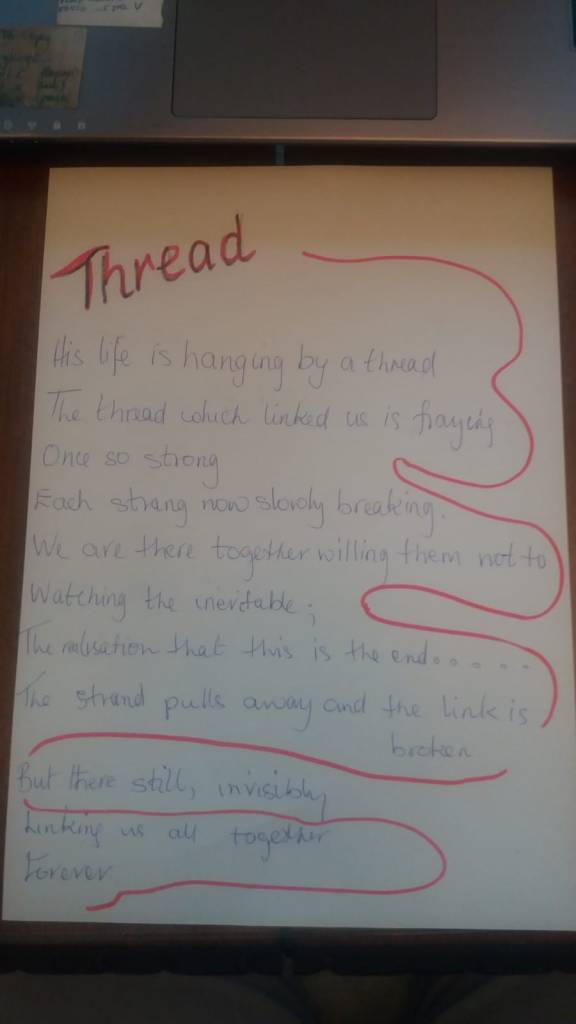 Thread
His life is hanging by a thread
The thread which linked us is fraying
Once so strong
Each strang now slowly breaking.
We are there together willing them not to
Watching the inevitable;
The realisation that this is the end......
The strand pulls away and the link is
broken
But there still, invisibly,
Linking us all together
Forever